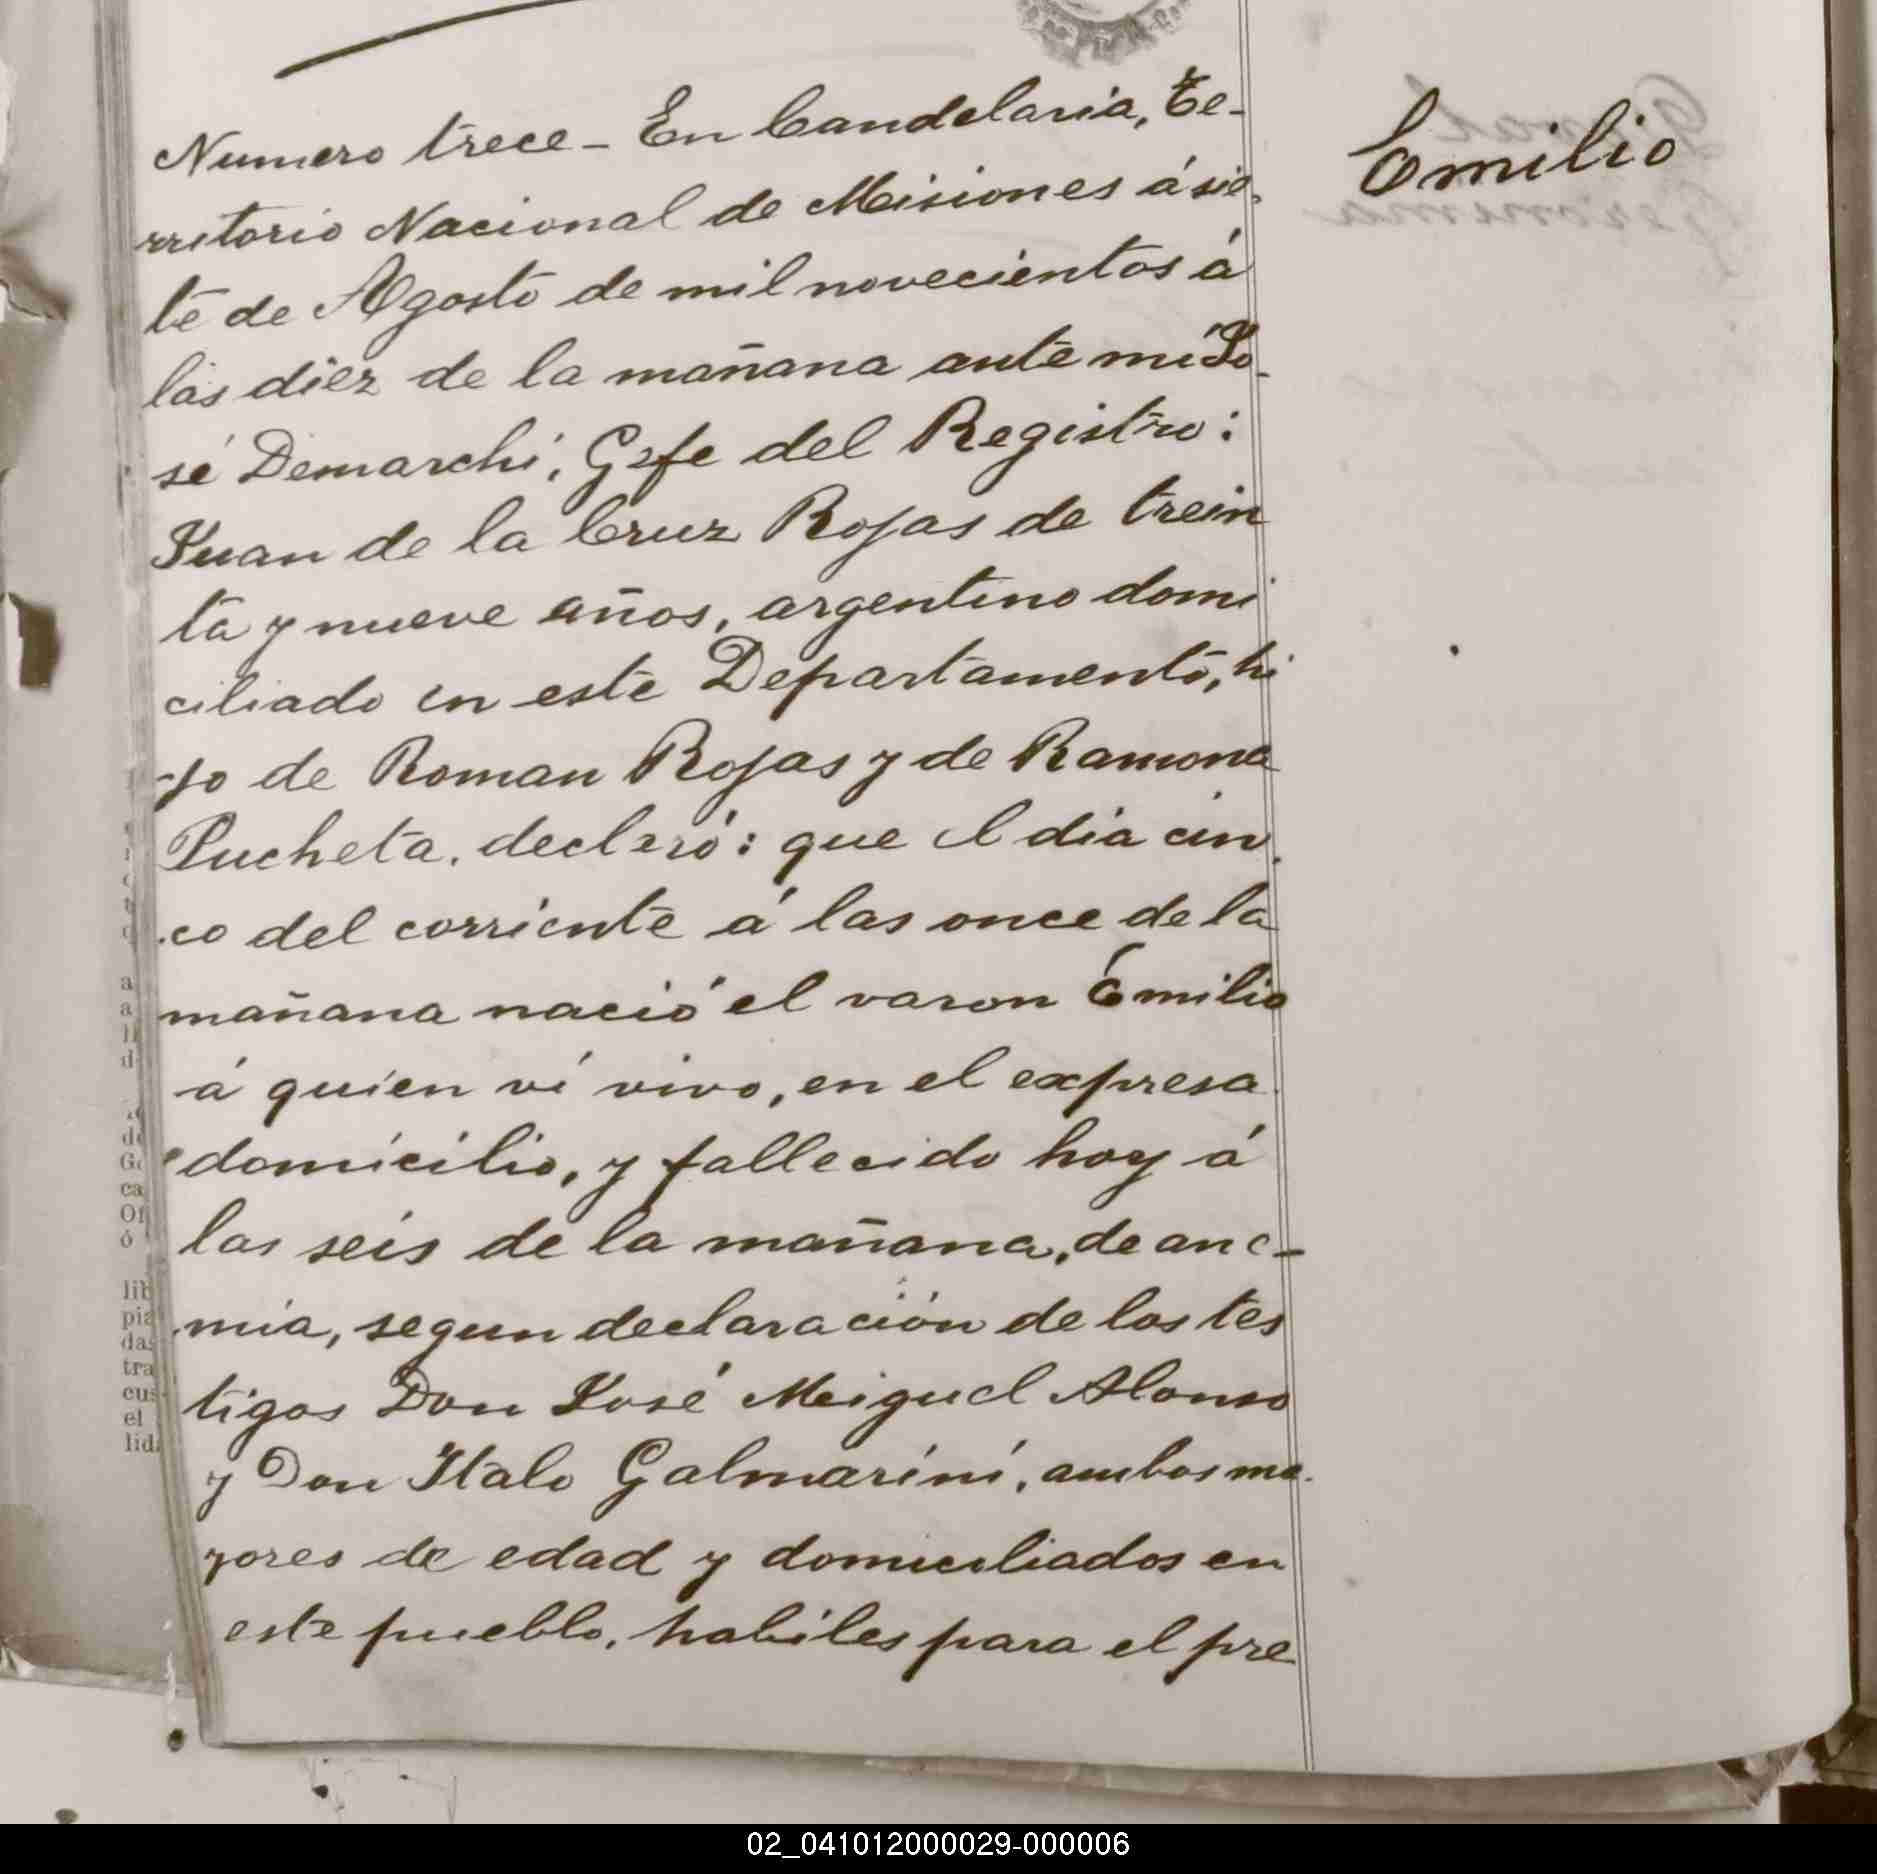 Numero trece - En Candelaria, Te-
rritorio Nacional de Misiones á sie-
te de Agosto de mil novecientos á
las diez de la mañana ante mi Jo-
sé Demarchi, Gefe del Registro:
Juan de la Cruz Rojas de trein
ta y nueve años, argentino domi
ciliado en este Departamento, hi
-jo de Roman Rojas y de Ramona
Pucheta, declaró: que el dia cin
co del corriente á las once de la
mañana nació el varon Emilio
á quien ví vivo, en el expresa
domicilio, y fallecido hoy á
las seis de la mañana, de ane-
mia, segun declaración de los tes
tigos Don José Miguel Alonso
y Don Italo Galmarini, ambos ma
yores de edad y domiciliados en
este pueblo, habiles para el pre
Emilio
02_041012000029-000006